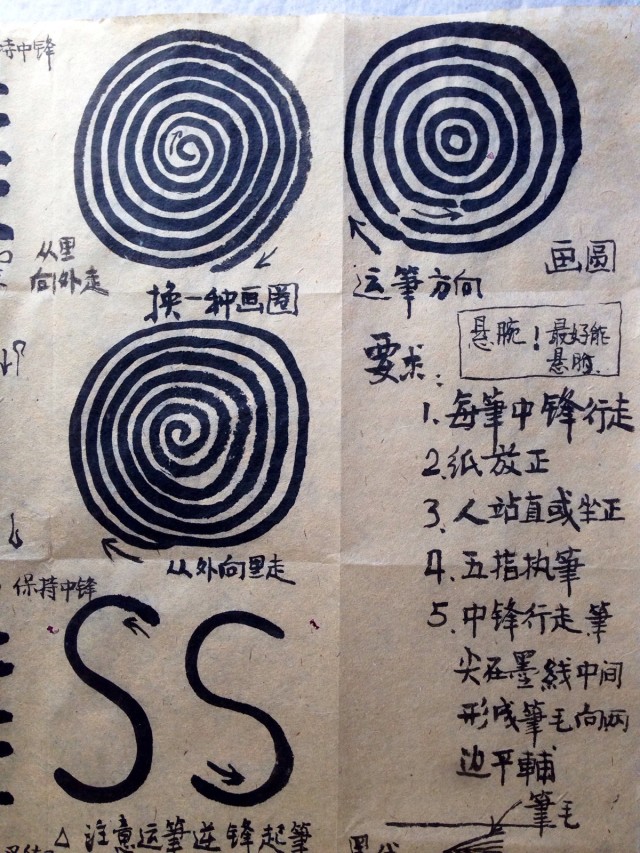 持中锋
从里
向外走
换一种画圈
运筆方向
画圓
悬腕！最好能
悬肘
要求：
1. 每筆中锋行走
2. 纸放正
3. 人站直或坐正
4. 五指执筆
5. 中锋行走筆
尖在墨线中间
形成筆毛向两
边平輔
从外向里走
保持中锋
△注意运筆逆锋起筆
筆毛